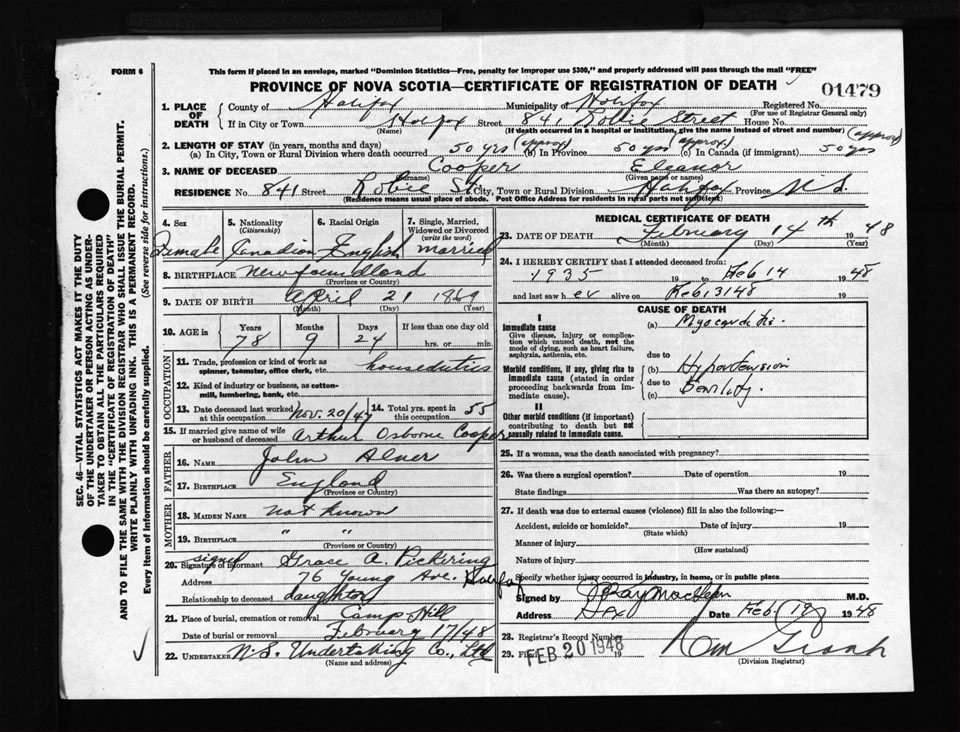 FORM 6
This form if placed in an envelope, marked "Dominion Statistics—Free, penalty for improper use $300," and properly addressed will pass through the mail "FREE"
PROVINCE OF NOVA SCOTIA—CERTIFICATE OF REGISTRATION OF DEATH
01479
1. PLACE OF DEATH
County of Halifax Municipality of Halifax Registered No.
(For use of Registrar General only)
If in City or Town Halifax Street 841 Street House No.
(Name) (If death occurred in a hospital or institution, give the name instead of street and number)
2. LENGTH OF STAY (in years, months and days) (approx) (approx.) (approx)
(a) In City, Town or Rural Division where death occurred 50 yrs (b) In Province 50 yrs (c) In Canada (if immigrant) 50 yrs
3. NAME OF DECEASED Cooper Eleanor
(Surname) (Given name or names)
RESIDENCE No. 841 Street Robie St. City, Town or Rural Division Halifax Province N.S.
(Residence means usual place of abode. Post Office Address for residents in rural parts not sufficient)
4. Sex Female
5. Nationality (Citizenship) Canadian
6. Racial Origin English
7. Single, Married, Widowed or Divorced (write the word) married
8. BIRTHPLACE Newfoundland
(Province or Country)
9. DATE OF BIRTH April 21 1869
(Month) (Day) (Year)
10. AGE in Years Months Days If less than one day old
78 9 24 hrs. or min.
OCCUPATION
11. Trade, profession or kind of work as spinner, teamster, office clerk, etc. houseduties
12. Kind of industry or business, as cotton-mill, lumbering, bank, etc.
13. Date deceased last worked at this occupation Nov. 20/47
14. Total yrs. spent in this occupation 55
15. If married give name of wife or husband of deceased Arthur Osborne Cooper
FATHER
16. NAME John
17. BIRTHPLACE England
(Province or Country)
MOTHER
18. MAIDEN NAME not known
19. BIRTHPLACE " "
(Province or Country)
signed
20. Signature of informant Grace A. Pickering
Address 76 Young Ave. Halifax
Relationship to deceased daughter
21. Place of burial, cremation or removal Camp Hill
Date of burial or removal February 17/48
22. UNDERTAKER N.S. Undertaking Co., Ltd
(Name and address)
MEDICAL CERTIFICATE OF DEATH
23. DATE OF DEATH February 14th 1948
(Month) (Day) (Year)
24. I HEREBY CERTIFY that I attended deceased from:
1935 19 to Feb 14 1948
and last saw h er alive on Feb. 13 48 19
CAUSE OF DEATH
I
Immediate cause
Give disease, injury or complication which caused death, not the mode of dying, such as heart failure, asphyxia, asthenia, etc.
(a) Myocarditis.
due to
Morbid conditions, if any, giving rise to immediate cause (stated in order proceeding backwards from immediate cause).
(b) Hypertension
due to
(c) Senility.
II
Other morbid conditions (if important) contributing to death but not causally related to immediate cause.
25. If a woman, was the death associated with pregnancy?
26. Was there a surgical operation? Date of operation 19
State findings Was there an autopsy?
27. If death was due to external causes (violence) fill in also the following:—
Accident, suicide or homicide? Date of injury 19
(State which)
Manner of injury
(How sustained)
Nature of injury
Specify whether injury occurred in industry, in home, or in public place
Signed by M.D.
Address Date Feb. 19 1948
28. Registrar's Record Number
29. Filed FEB 20 1948 19
(Division Registrar)
SEC. 46—VITAL STATISTICS ACT MAKES IT THE DUTY
OF THE UNDERTAKER OR PERSON ACTING AS UNDER-
TAKER TO OBTAIN ALL THE PARTICULARS REQUIRED
IN THE "CERTIFICATE OF REGISTRATION OF DEATH"
AND TO FILE THE SAME WITH THE DIVISION REGISTRAR WHO SHALL ISSUE THE BURIAL PERMIT.
WRITE PLAINLY WITH UNFADING INK. THIS IS A PERMANENT RECORD.
Every item of information should be carefully supplied. (See reverse side for instructions.)